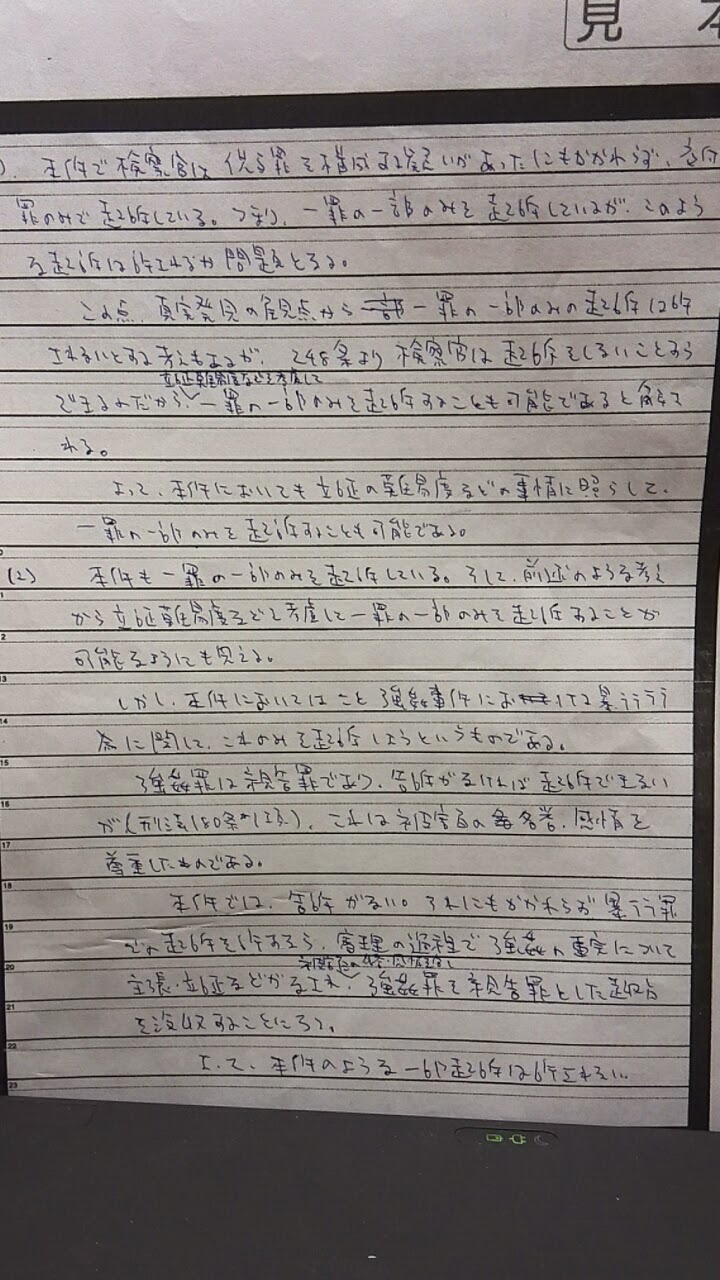 見本
). 本件で検察官は 供与罪を構成する疑いがあったにもかかわらず、交付
罪のみで起訴している。つまり、一罪の一部のみを起訴しているが、このよう
な起訴は許されるか問題となる。
この点、真実発見の見点から一罪の一部のみの起訴は許
されないとする考えもあるが、248条より検察官は起訴をしないことすら
立証難易度なども考慮して
できるのだから、一罪の一部のみを起訴することも可能であると解さ
れる。
よって、本件においても立証の難易度などの事情に照らして、
一罪の一部のみを起訴することも可能である。
(2) 本件も一罪の一部のみを起訴している。そして、前述のような考え
から立証難易度などを考慮して一罪の一部のみを起訴することが
可能なようにも見える。
しかし、本件においてはこと強姦事件における暴行行
為に関して、これのみを起訴しようというものである。
強姦罪は親告罪であり、告訴がなければ起訴できない
が(刑法180条1項)、これは被害者の名誉、感情を
尊重したものである。
本件では、告訴がない。それにもかかわらず暴行罪
での起訴を許すなら、審理の過程で強姦の事実について
主張・立証などがなされ、強姦罪を親告罪とした趣旨
を没収することになる。
よって、本件のような一部起訴は許されない。
12
13
14
15
16
17
18
19
20
21
22
23